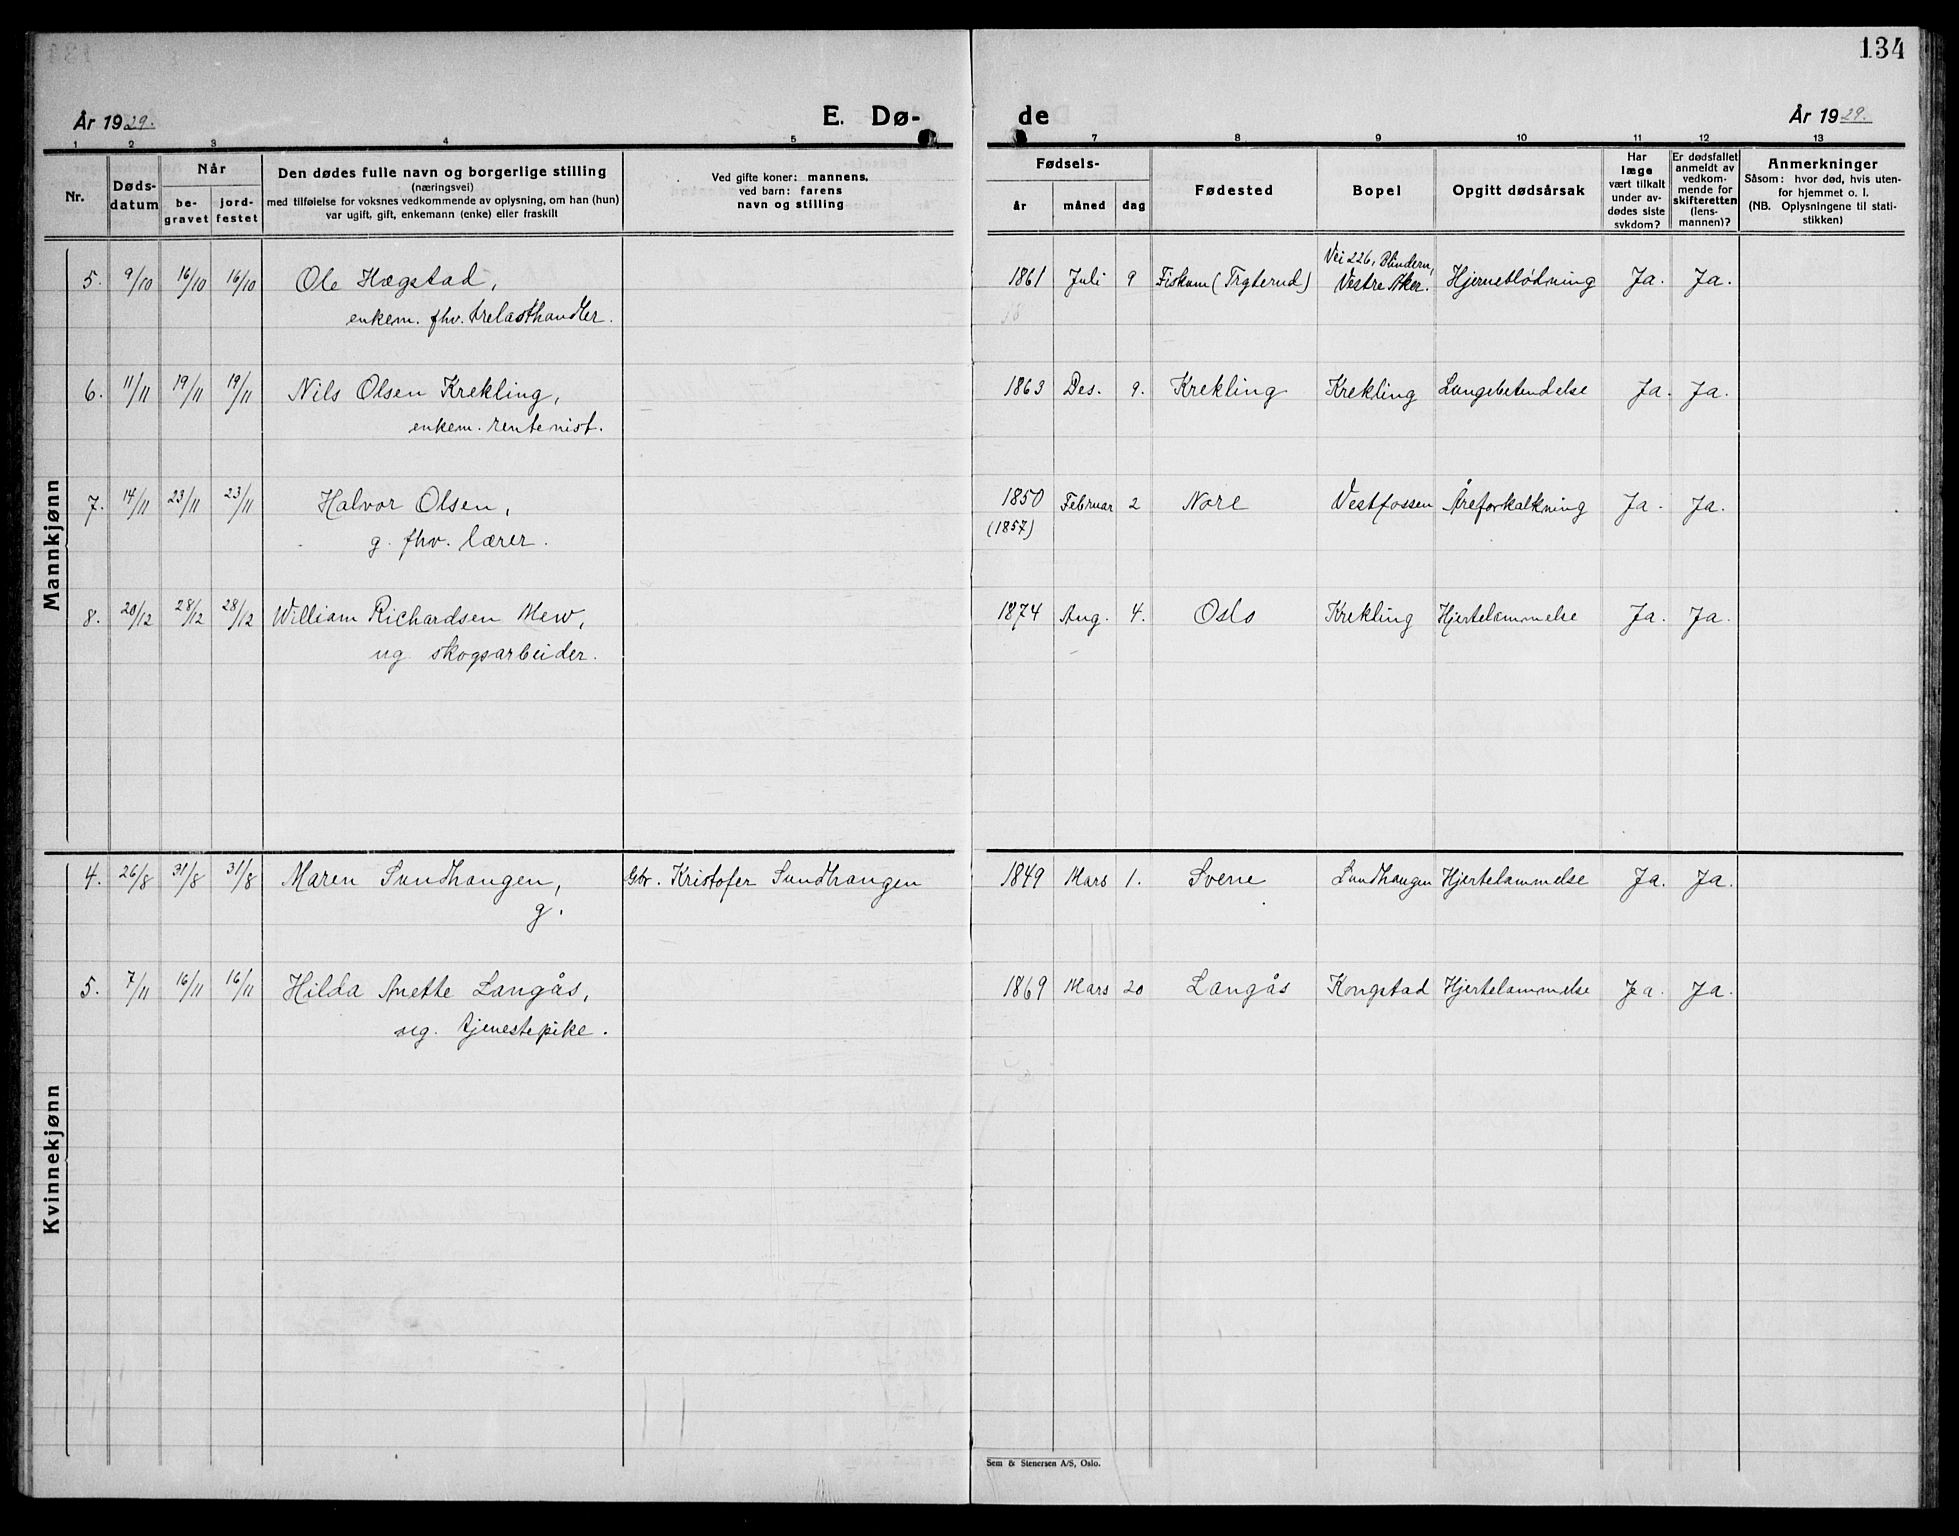 134
År 1929. E. Dø- de År 1929.
1 2 3 4 5 7 8 9 10 11 12 13
Nr.
Døds-
datum
Når
be-
gravet
jord-
festet
Den dødes fulle navn og borgerlige stilling
(næringsvei)
med tilføielse for voksnes vedkommende av oplysning, om han (hun)
var ugift, gift, enkemann (enke) eller fraskilt
Ved gifte koner: mannens,
ved barn: farens
navn og stilling
Fødsels-
år måned dag
Fødested
Bopel
Opgitt dødsårsak
Har
læge
vært tilkalt
under av-
dødes siste
sykdom?
Er dødsfallet
anmeldt av
vedkom-
mende for
skifteretten
(lens-
mannen)?
Anmerkninger
Såsom: hvor død, hvis uten-
for hjemmet o. l.
(NB. Oplysningene til stati-
stikken)
Mannkjønn
Vei 226, Blindern,
5. 9/10 16/10 16/10 Ole Hægstad, 1861 Juli 9 Fiskum (Trgterud) Vestre Aker. Hjerneblødning Ja. Ja.
enkem. fhv. trelasthandler.
6. 11/11 19/11 19/11 Nils Olsen Krekling, 1863 Des. 9. Krekling Krekling Lungebetendelse Ja. Ja.
enkem. rentenist.
7. 14/11 23/11 23/11 Halvor Olsen, 1850 Februar 2 Nore Vestfossen Åreforkalkning Ja. Ja.
(1857)
g. fhv. lærer.
8. 20/12 28/12 28/12 William Richardsen Mew, 1874 Aug. 4. Oslo Krekling Hjertelammelse Ja. Ja.
ug. skogsarbeider.
Kvinnekjønn
4. 26/8 31/8 31/8 Maren Sundhaugen, Gbr. Kristofer Sundhaugen 1849 Mars 1. Svene Sundhaugen Hjertelammelse Ja. Ja.
g.
5. 7/11 16/11 16/11 Hilda Anette Langås, 1869 Mars 20 Langås Kongstad Hjertelammelse Ja. Ja.
ug. tjenestepike.
Sem & Stenersen A/S, Oslo.